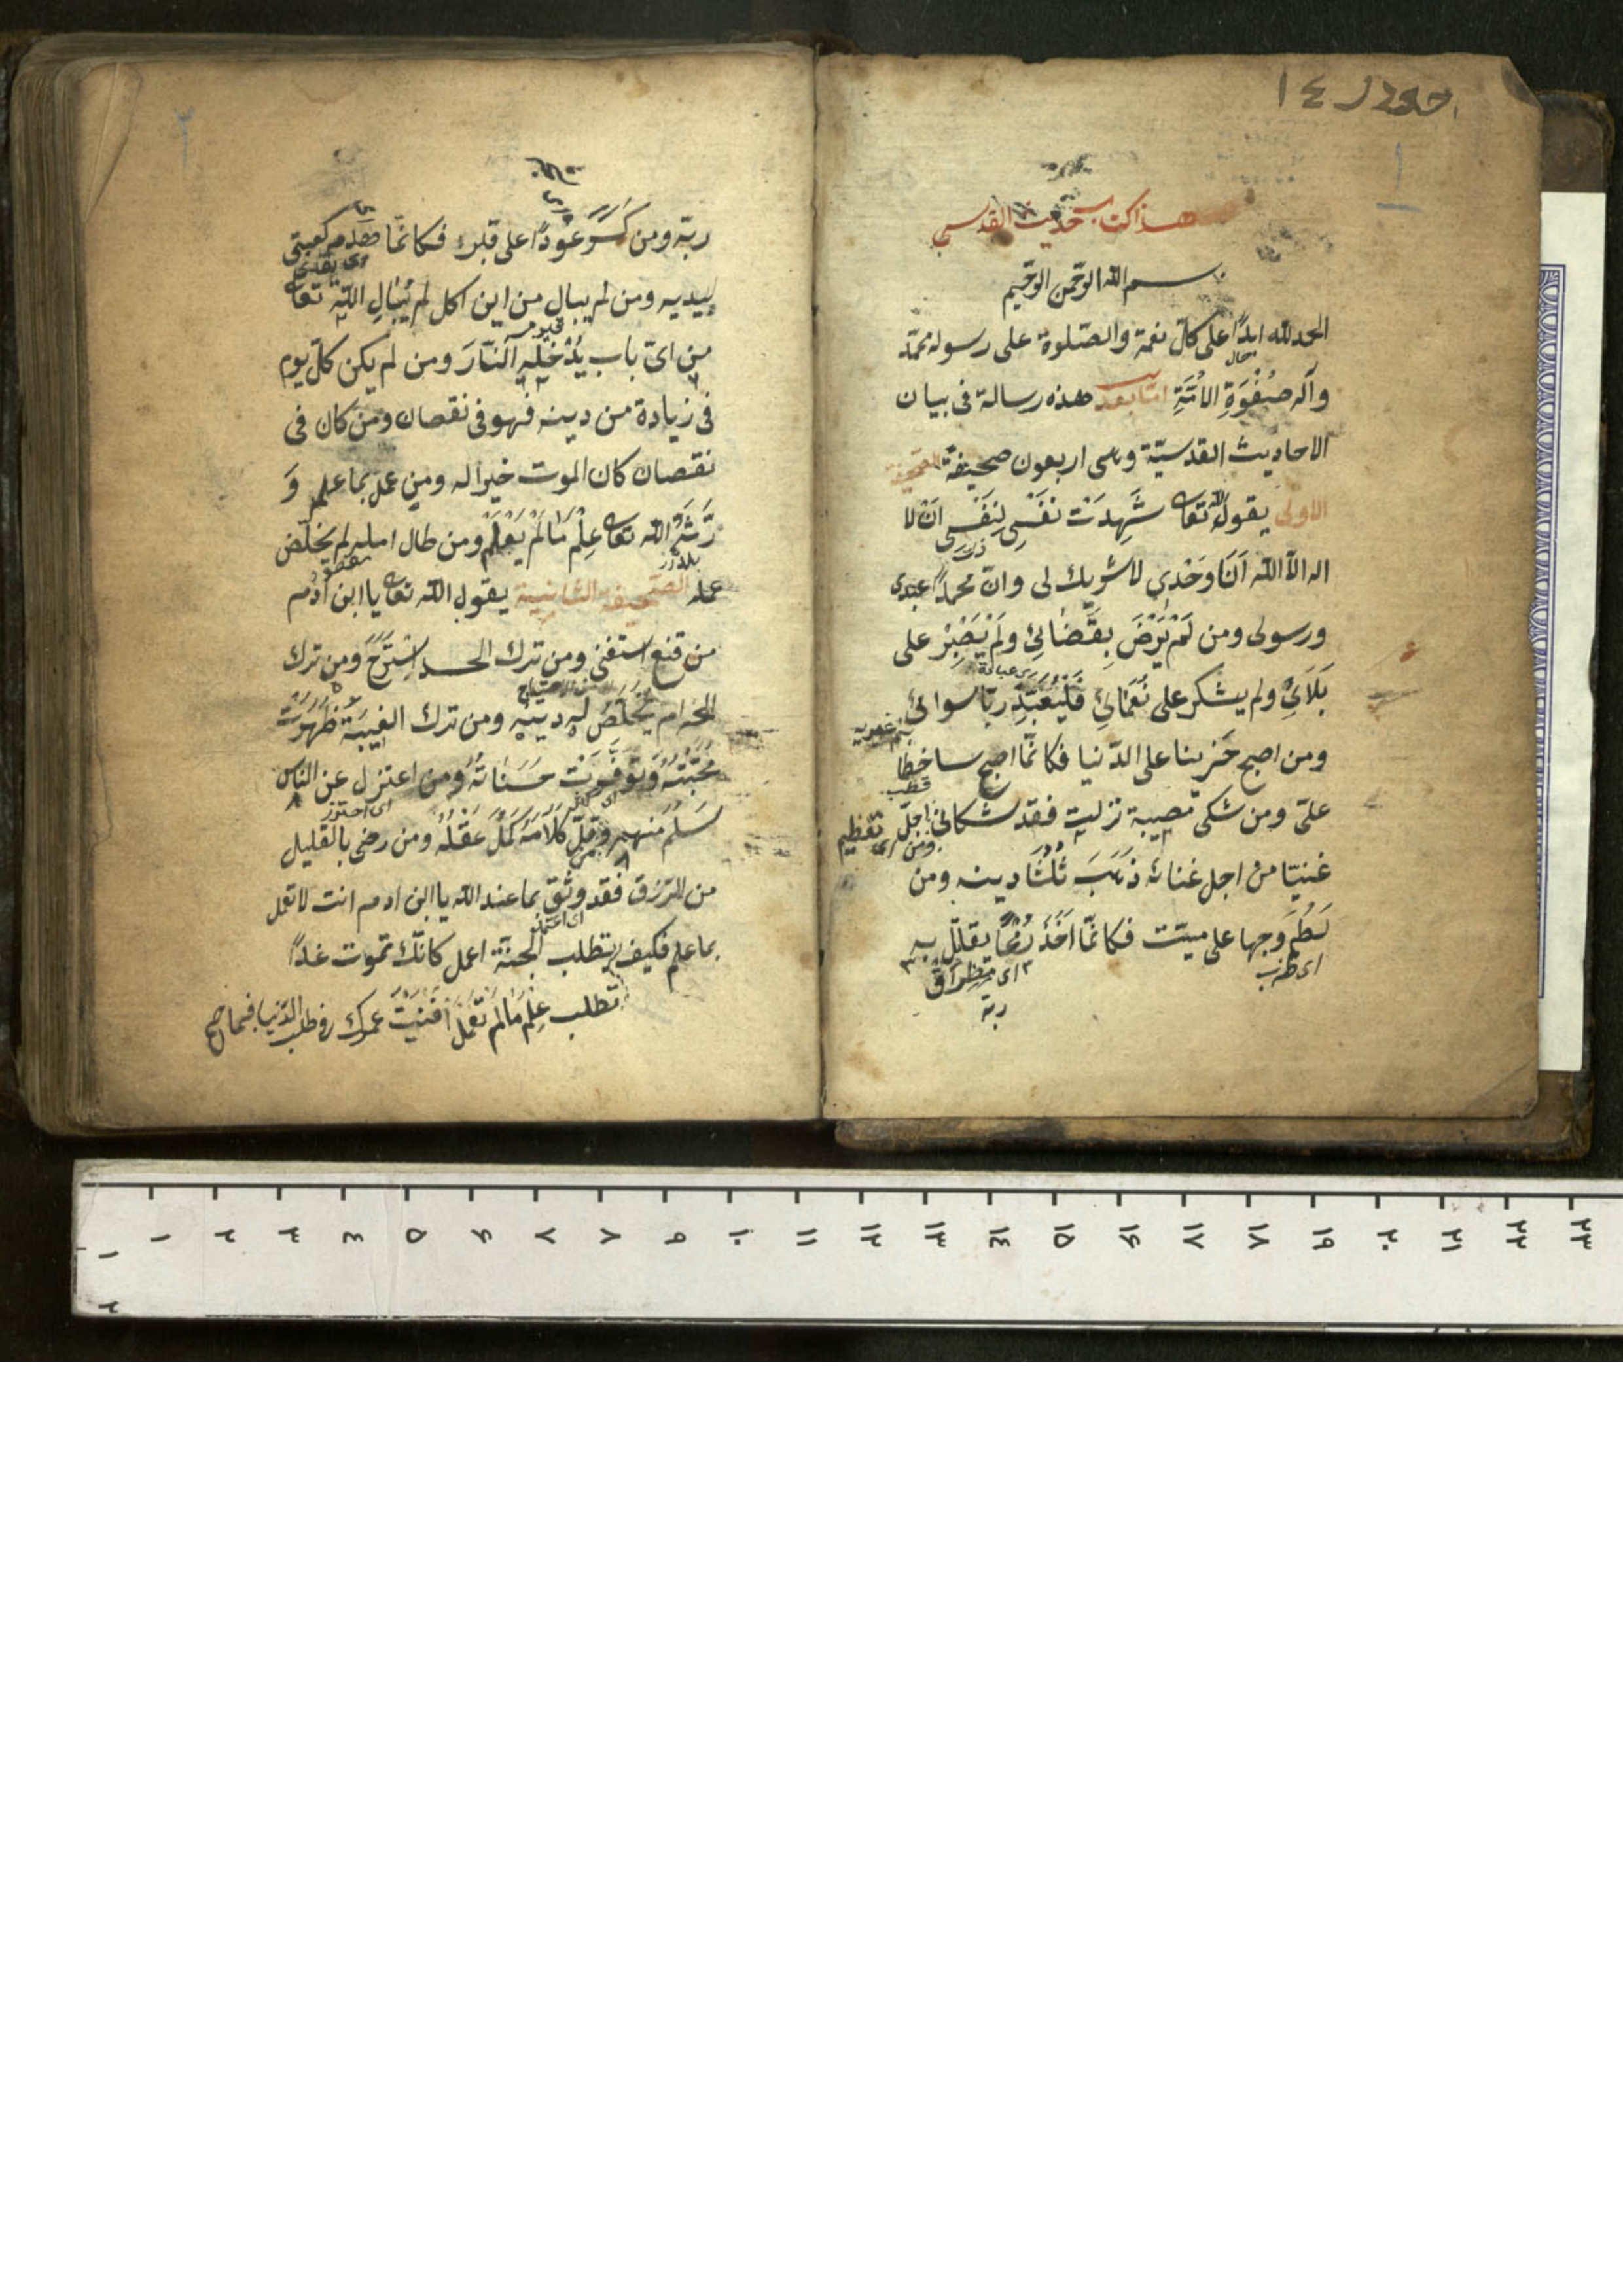 ١
هذا كتاب حديث القدسى
بسم الله الرّحمن الرّحيم
الحمد لله ابدًا على كلّ نعمة والصّلوة على رسوله محمّد
وآله صَفْوَةِ الامَّةِ امّا بعد هذه رسالة فى بيان
الاحاديث القدسيّة وهى اربعون صحيفة الصحيفة
الاولى يقول الله تعا شَهِدَتْ نَفْسِى لِنَفْسِى اَنْ لا
اله الّا الله اَنَا وَحْدِى لا شريك لى وانّ محمدًا عبدى
ورسولى ومن لَمْ يَرْضَ بِقَضَائِى وَلَمْ يَصْبِرْ على
بَلَائِى ولم يشكر على نَعْمَائِى فَلْيَعْبُدْ ربّا سوائى
ومن اصبح حزينا على الدّنيا فكانّما اصبح ساخطا
علىّ ومن شكى مصيبة نزلت فقد شكانى ومن اجلّ
غنيّا من اجل غنائه ذَهَبَ ثُلُثَا دينه ومن
لَطَمَ وَجها على ميّت فكانّما اَخَذَ رُمْحًا يقاتل به
اى ضرب
ربّه
٢
ربّه ومن كَسَرَ عُودًا على قبر فكانّما هدم كعبتى
بيديه ومن لم يبال من اين اكل لم يُبَالِ اللّٰه تعا
من اىّ باب يُدْخِلُه النّارَ ومن لم يكن كلّ يوم
فى زيادة من دينه فهو فى نقصان ومن كان فى
نقصان كان الموت خيرا له ومن عمل بما علم وَ
رَّثَهُ الله تعا عِلْمَ مَا لَمْ يَعْلَمْ ومن طال امله لم يخلّص
عمله الصّحيفة الثانية يقول الله تعا يا ابن آدم
من قنع استغنى ومن ترك الحسد اِسْتَرَحَ ومن ترك
الحرام يَخْلُصُ له دينه ومن ترك الغيبة ظَهَرَتْ
مَحَبَّتُهُ وَتَوَفَّرَتْ حَسَنَاتُهُ ومن اعتزل عن الناس
سَلِمَ منهم ومن قلّ كَلَامُهُ كَمُلَ عَقْلُهُ ومن رضى بالقليل
من الرّزق فقد وثق بما عند الله يا ابن ادم انت لا تعمل
بما علم فكيف تطلب الجنّة اعمل كانّك تموت غدًا
تطلب عِلْمَ مَالَمْ تَعْمَلْ اَفْنَيْتَ عمرك فى طلب الدّنيا
١ ٢ ٣ ٤ ٥ ۶ ٧ ٨ ٩ ١٠ ١١ ١٢ ١٣ ١٤ ١٥ ١۶ ١٧ ١٨ ١٩ ٢٠ ٢١ ٢٢ ٢٣
١
٢